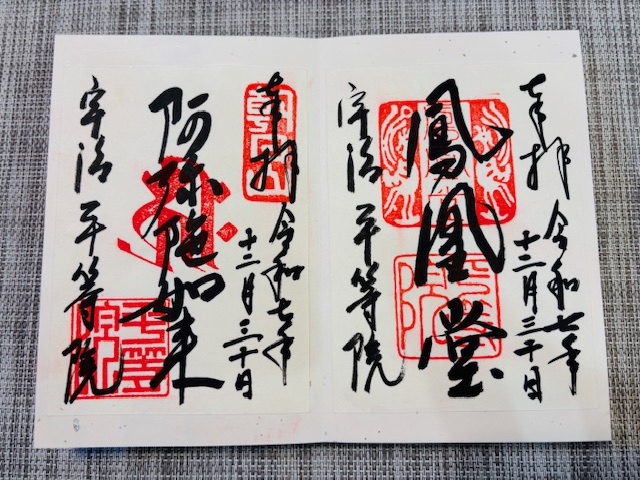 奉拝
令和七年
十二月三十日
鳳凰堂
宇治 平等院
奉拝
令和七年
十二月三十日
阿弥陀如来
宇治 平等院